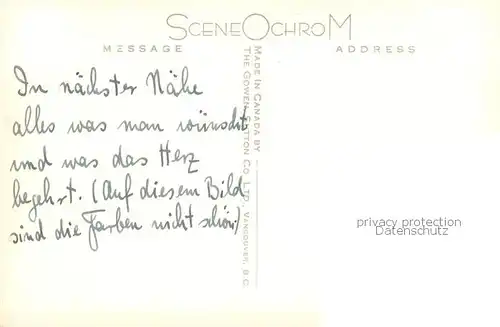 SCENEOCHROM
MESSAGE
ADDRESS
In nächster Nähe
alles was man wünscht
und was das Herz
begehrt. (Auf diesem Bild
sind die Farben nicht schön)
MADE IN CANADA BY
THE GOWEN SUTTON CO. LTD., VANCOUVER, B.C.
privacy protection
Datenschutz